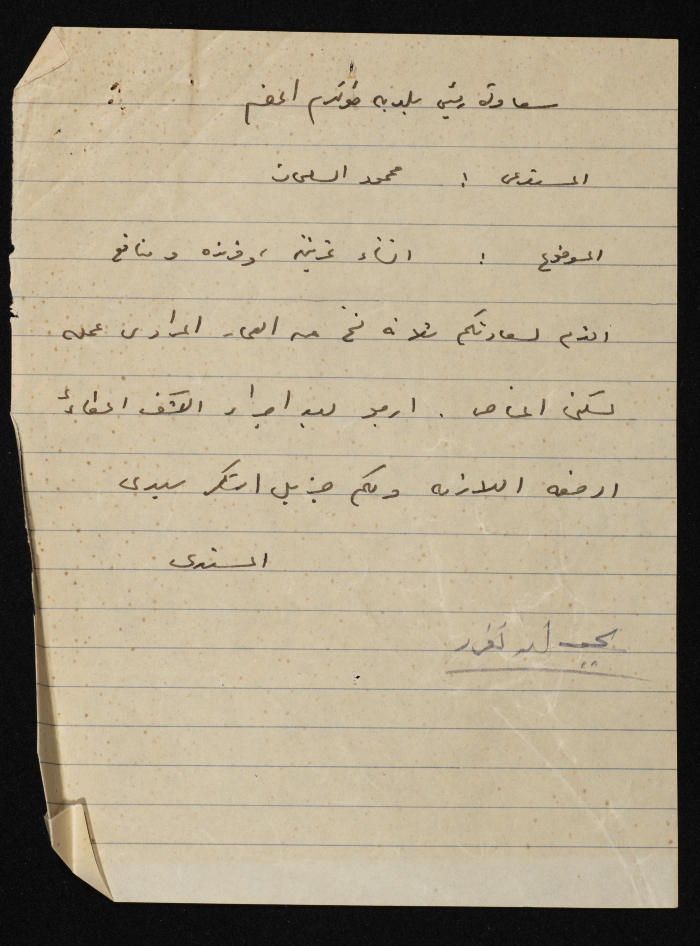 سعادة رئيس بلدية طولكرم المعظم
المستدعي : محمود السلمان
الموضوع : انشاء غرفتين وفرنده ومنافع
اقدم لسعادتكم ثلاثة نسخ من المراد عمله
لسكني الخاص . ارجو بعد اجراء الكشف اعطائي
الرخصه اللازمه ولكم جزيل الشكر سيدي
المستدعي